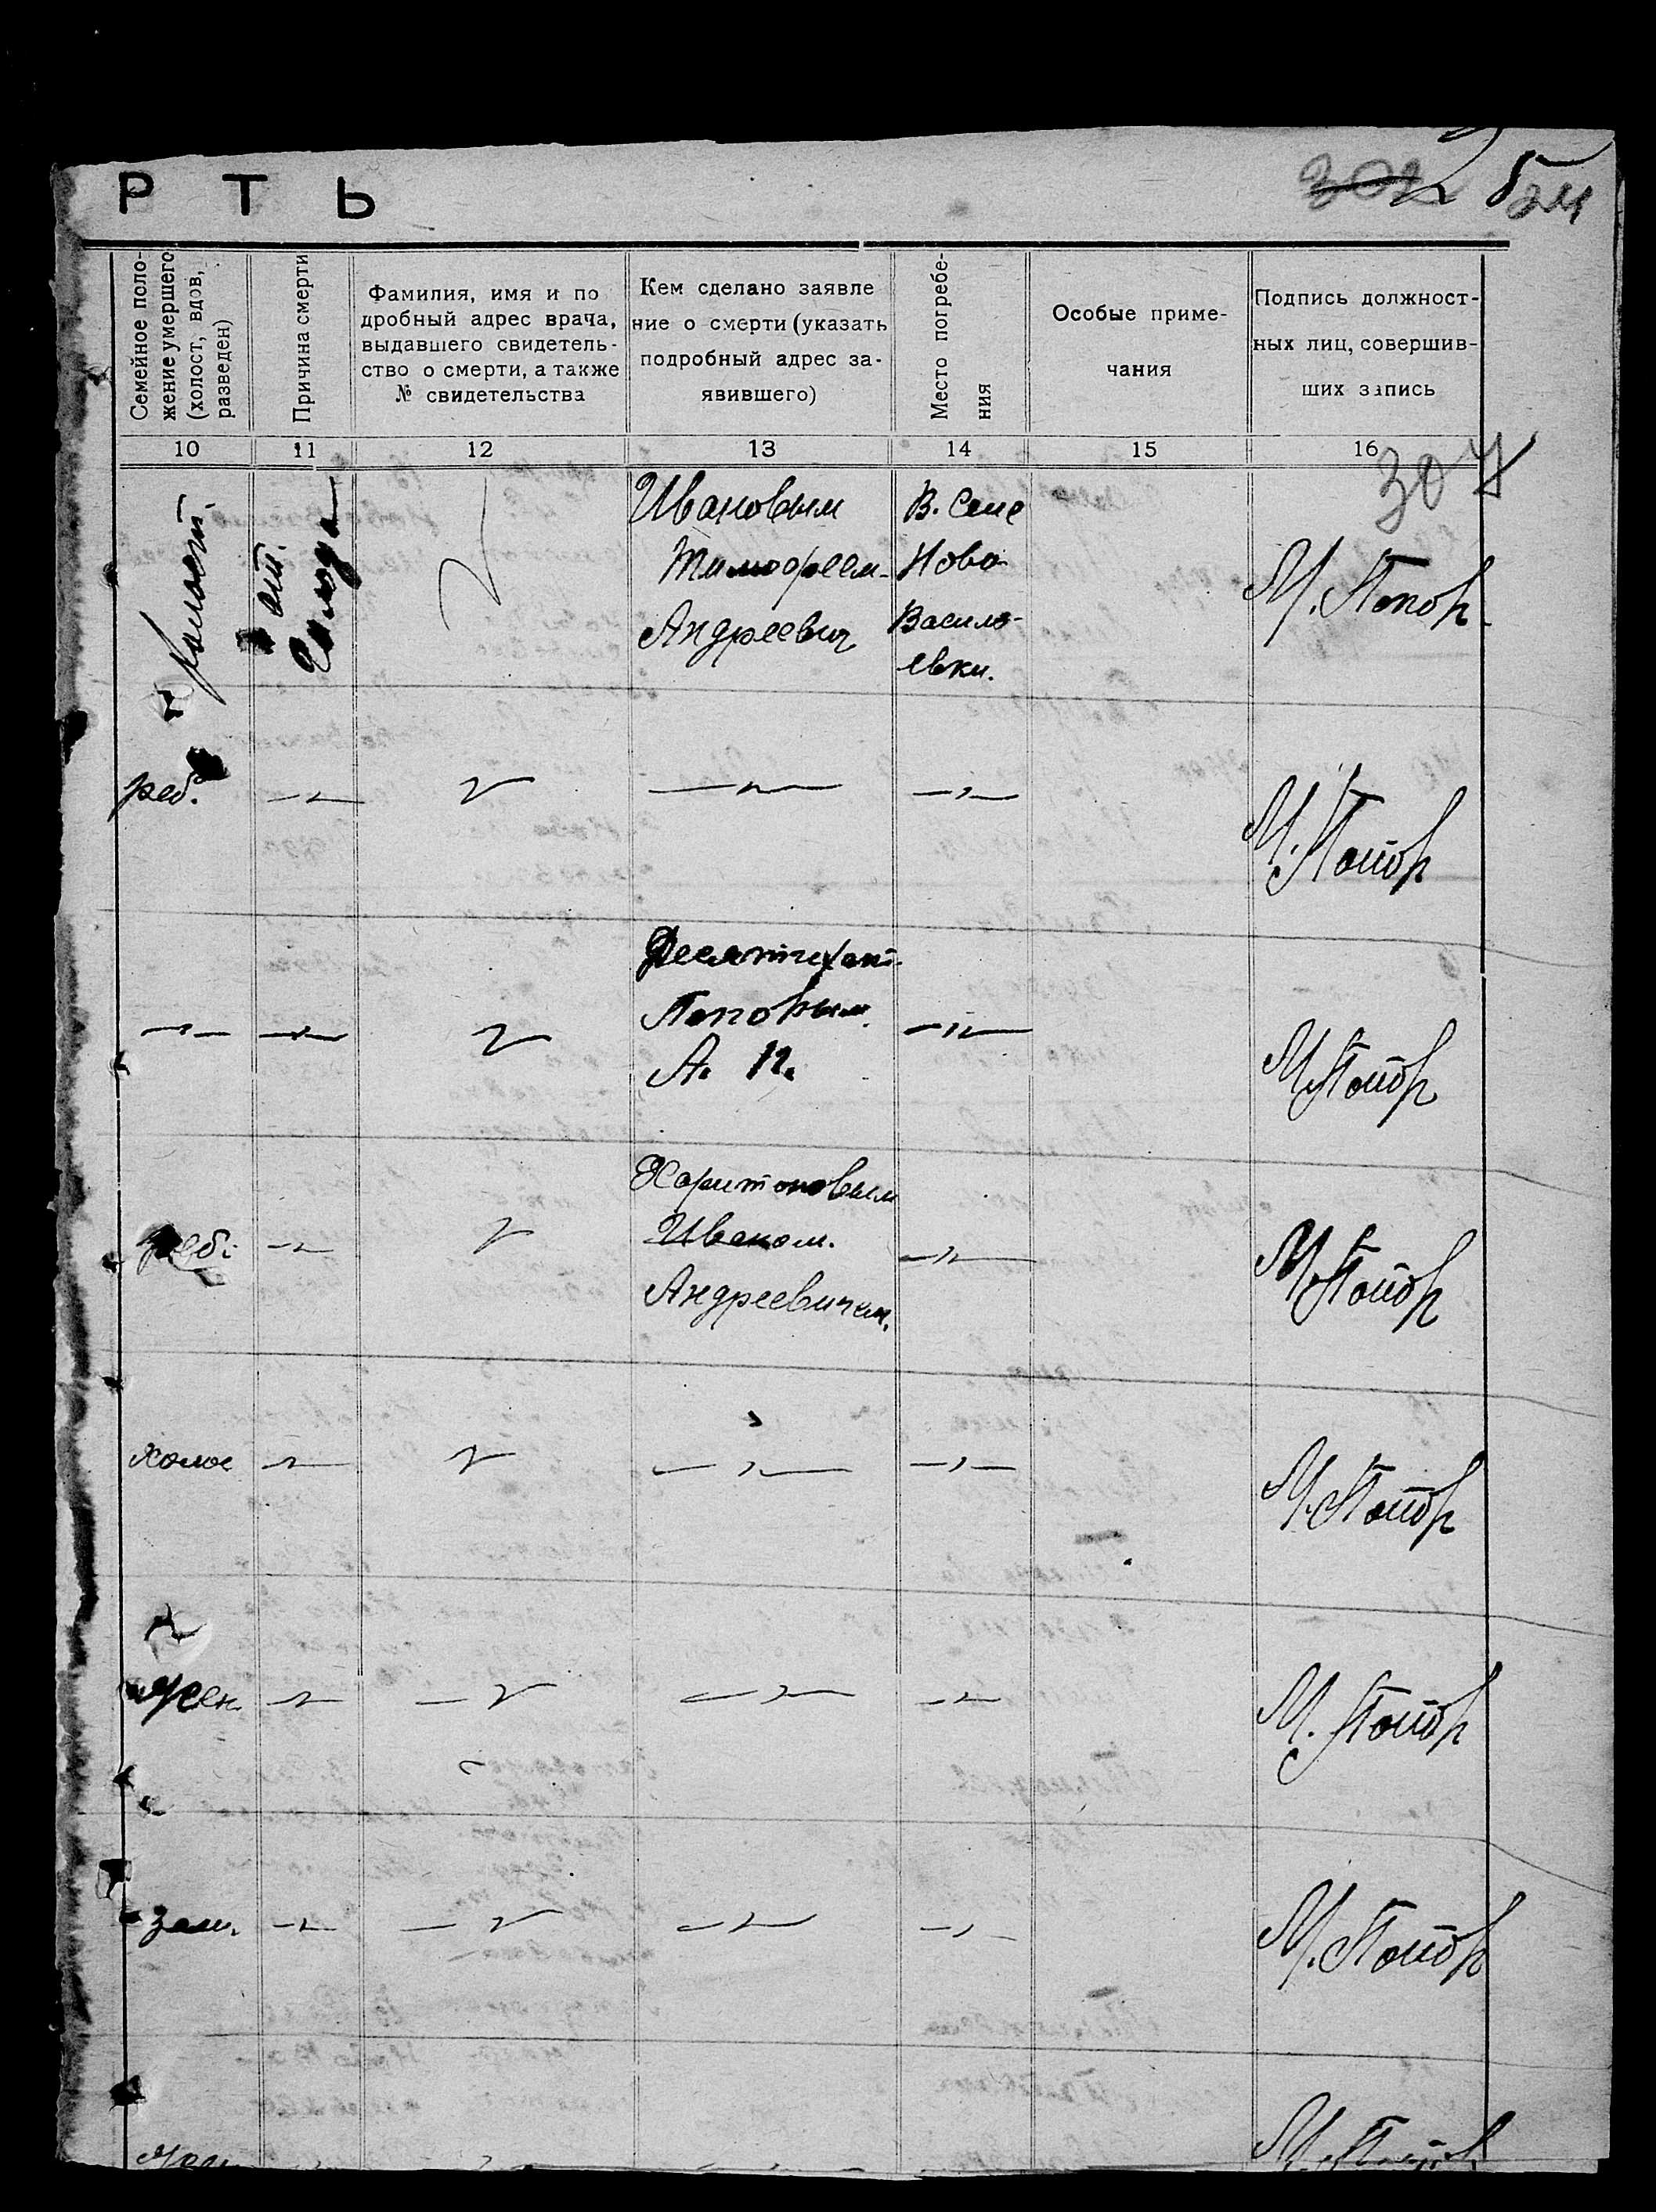 Р Т Ь
302
25
Семейное поло-
жение умершего
(холост, вдов,
разведен)
Причина смерти
Фамилия, имя и по
дробный адрес врача,
выдавшего свидетель-
ство о смерти, а также
№ свидетельства
Кем сделано заявле
ние о смерти (указать
подробный адрес за-
явившего)
Место погребе-
ния
Особые приме-
чания
Подпись должност-
ных лиц, совершив-
ших запись
10 11 12 13 14 15 16
307
холост.
от
Голода
Ивановым
Тимофеем
Андреевич
В. Селе
Ново
Василь-
евки.
М. Попов
реб.
М. Попов
Поповым
А. П.
М. Попов
реб.
Харитоновым
Иваном.
Андреевичем.
М. Попов
холос
М. Попов
жен.
М. Попов
зам.
М. Попов